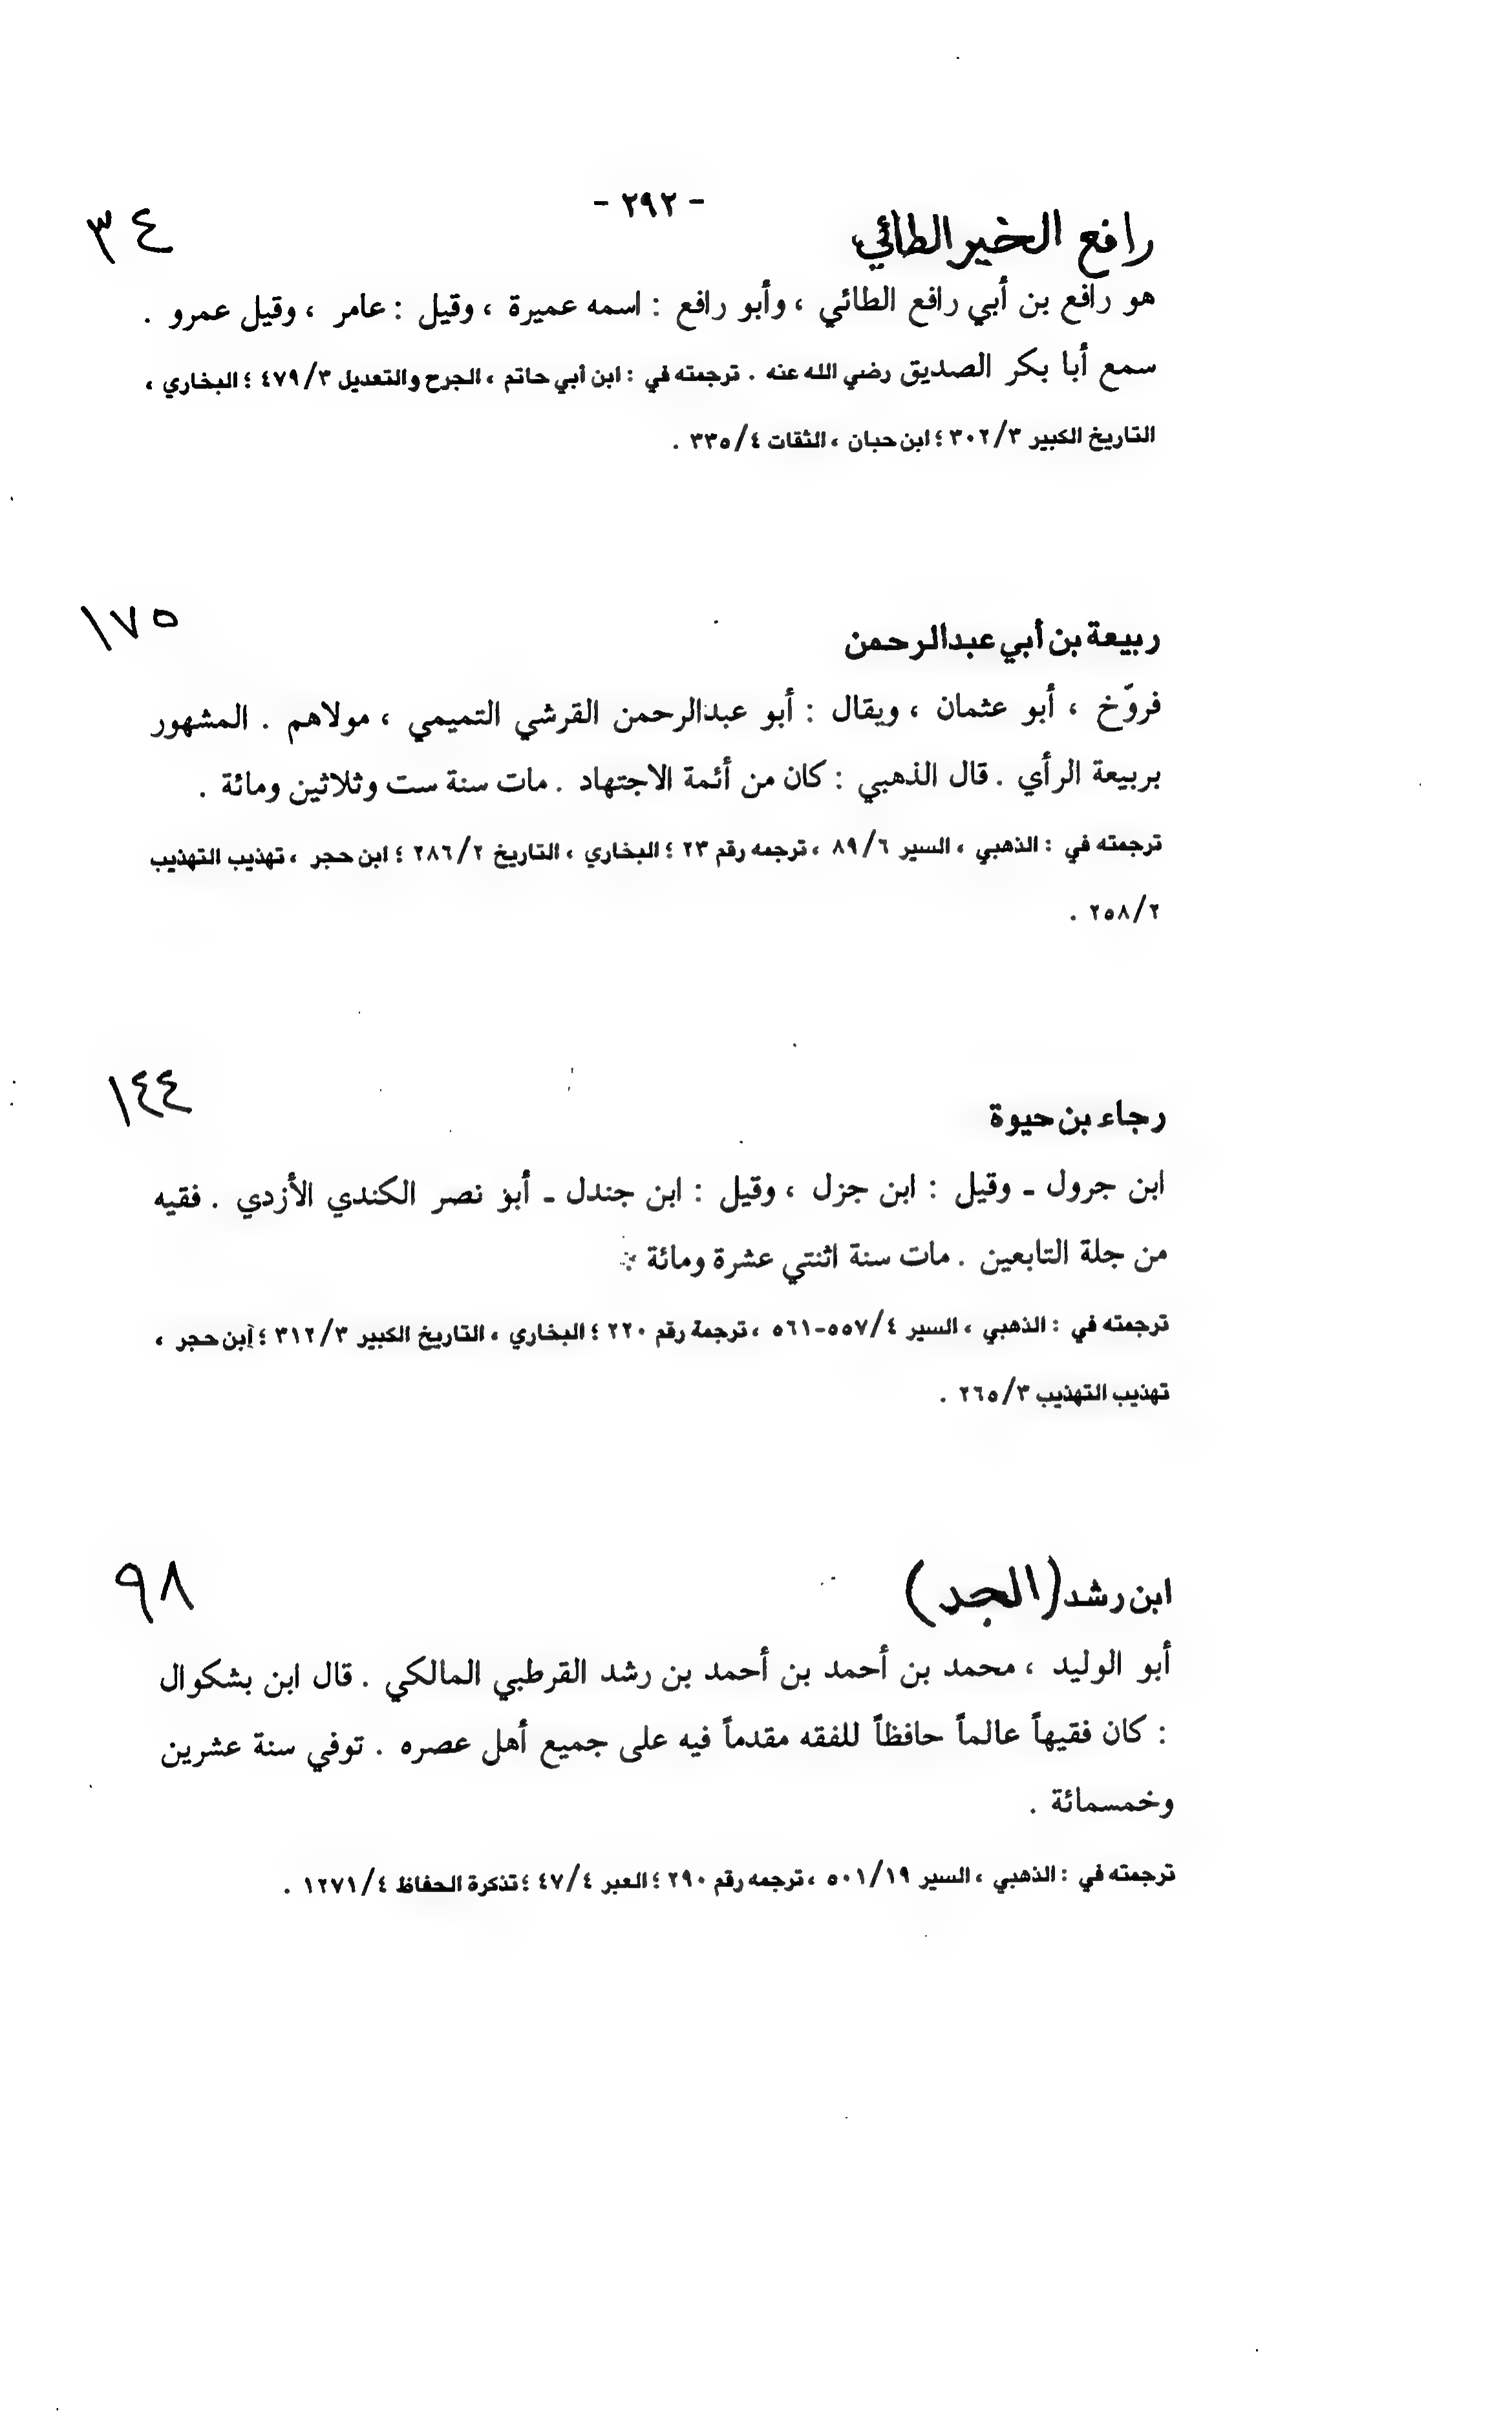 - ٢٩٢ -
رافع الخير الطائي ٣٤
هو رافع بن أبي رافع الطائي ، وأبو رافع : اسمه عميرة ، وقيل : عامر ، وقيل عمرو .
سمع أبا بكر الصديق رضي الله عنه . ترجمته في : ابن أبي حاتم ، الجرح والتعديل ٤٧٩/٣ ؛ البخاري ،
التاريخ الكبير ٣٠٢/٣ ؛ ابن حبان ، الثقات ٣٣٥/٤ .
ربيعة بن أبي عبدالرحمن ١٧٥
فروّخ ، أبو عثمان ، ويقال : أبو عبدالرحمن القرشي التميمي ، مولاهم . المشهور
بربيعة الرأي . قال الذهبي : كان من أئمة الاجتهاد . مات سنة ست وثلاثين ومائة .
ترجمته في : الذهبي ، السير ٨٩/٦ ، ترجمه رقم ٢٣ ؛ البخاري ، التاريخ ٢٨٦/٢ ؛ ابن حجر ، تهذيب التهذيب
٢٥٨/٢ .
رجاء بن حيوة ١٤٤
ابن جرول ـ وقيل : ابن جزل ، وقيل : ابن جندل ـ أبو نصر الكندي الأزدي . فقيه
من جلة التابعين . مات سنة اثنتي عشرة ومائة .
ترجمته في : الذهبي ، السير ٥٥٧/٤-٥٦١ ، ترجمة رقم ٢٢٠ ؛ البخاري ، التاريخ الكبير ٣١٢/٣ ؛ إبن حجر ،
تهذيب التهذيب ٢٦٥/٣ .
ابن رشد (الجد) ٩٨
أبو الوليد ، محمد بن أحمد بن أحمد بن رشد القرطبي المالكي . قال ابن بشكوال
: كان فقيهاً عالماً حافظاً للفقه مقدماً فيه على جميع أهل عصره . توفي سنة عشرين
وخمسمائة .
ترجمته في : الذهبي ، السير ٥٠١/١٩ ، ترجمه رقم ٢٩٠ ؛ العبر ٤٧/٤ ؛ تذكرة الحفاظ ١٢٧١/٤ .